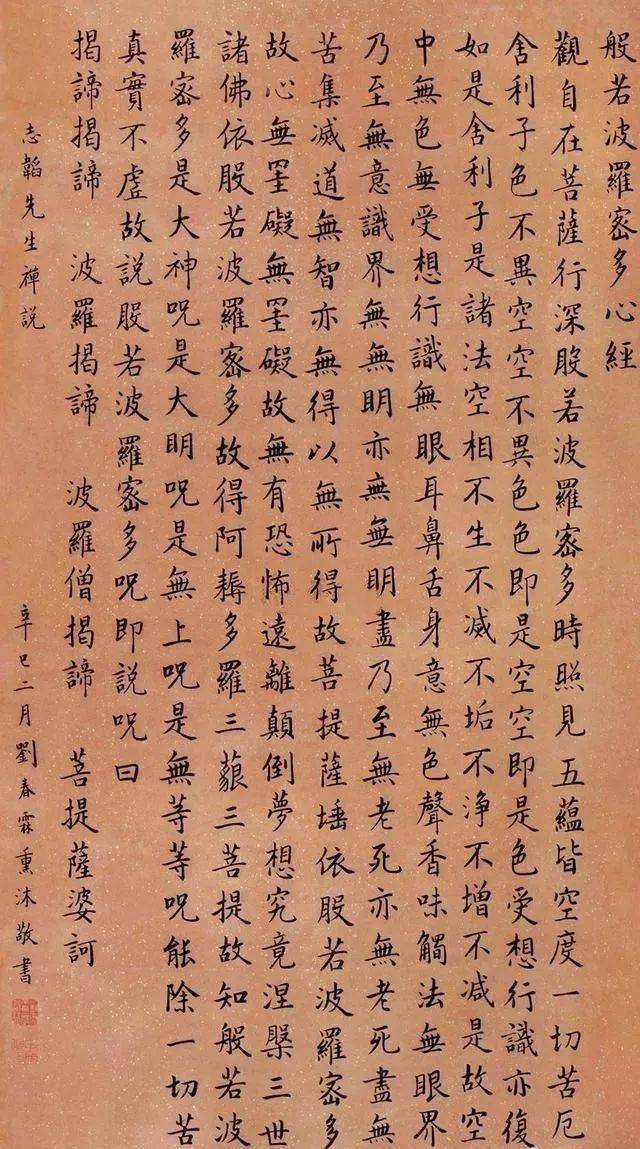 般若波羅密多心經
觀自在菩薩行深般若波羅密多時照見五蘊皆空度一切苦厄
舍利子色不異空空不異色色即是空空即是色受想行識亦復
如是舍利子是諸法空相不生不滅不垢不淨不增不減是故空
中無色無受想行識無眼耳鼻舌身意無色聲香味觸法無眼界
乃至無意識界無無明亦無無明盡乃至無老死亦無老死盡無
苦集滅道無智亦無得以無所得故菩提薩埵依般若波羅密多
故心無罣礙無罣礙故無有恐怖遠離顛倒夢想究竟涅槃三世
諸佛依般若波羅密多故得阿耨多羅三藐三菩提故知般若波
羅密多是大神咒是大明咒是無上咒是無等等咒能除一切苦
真實不虛故說般若波羅密多咒即說咒曰
揭諦揭諦 波羅揭諦 波羅僧揭諦 菩提薩婆訶
志韜先生禪說
辛巳二月劉春霖熏沐敬書